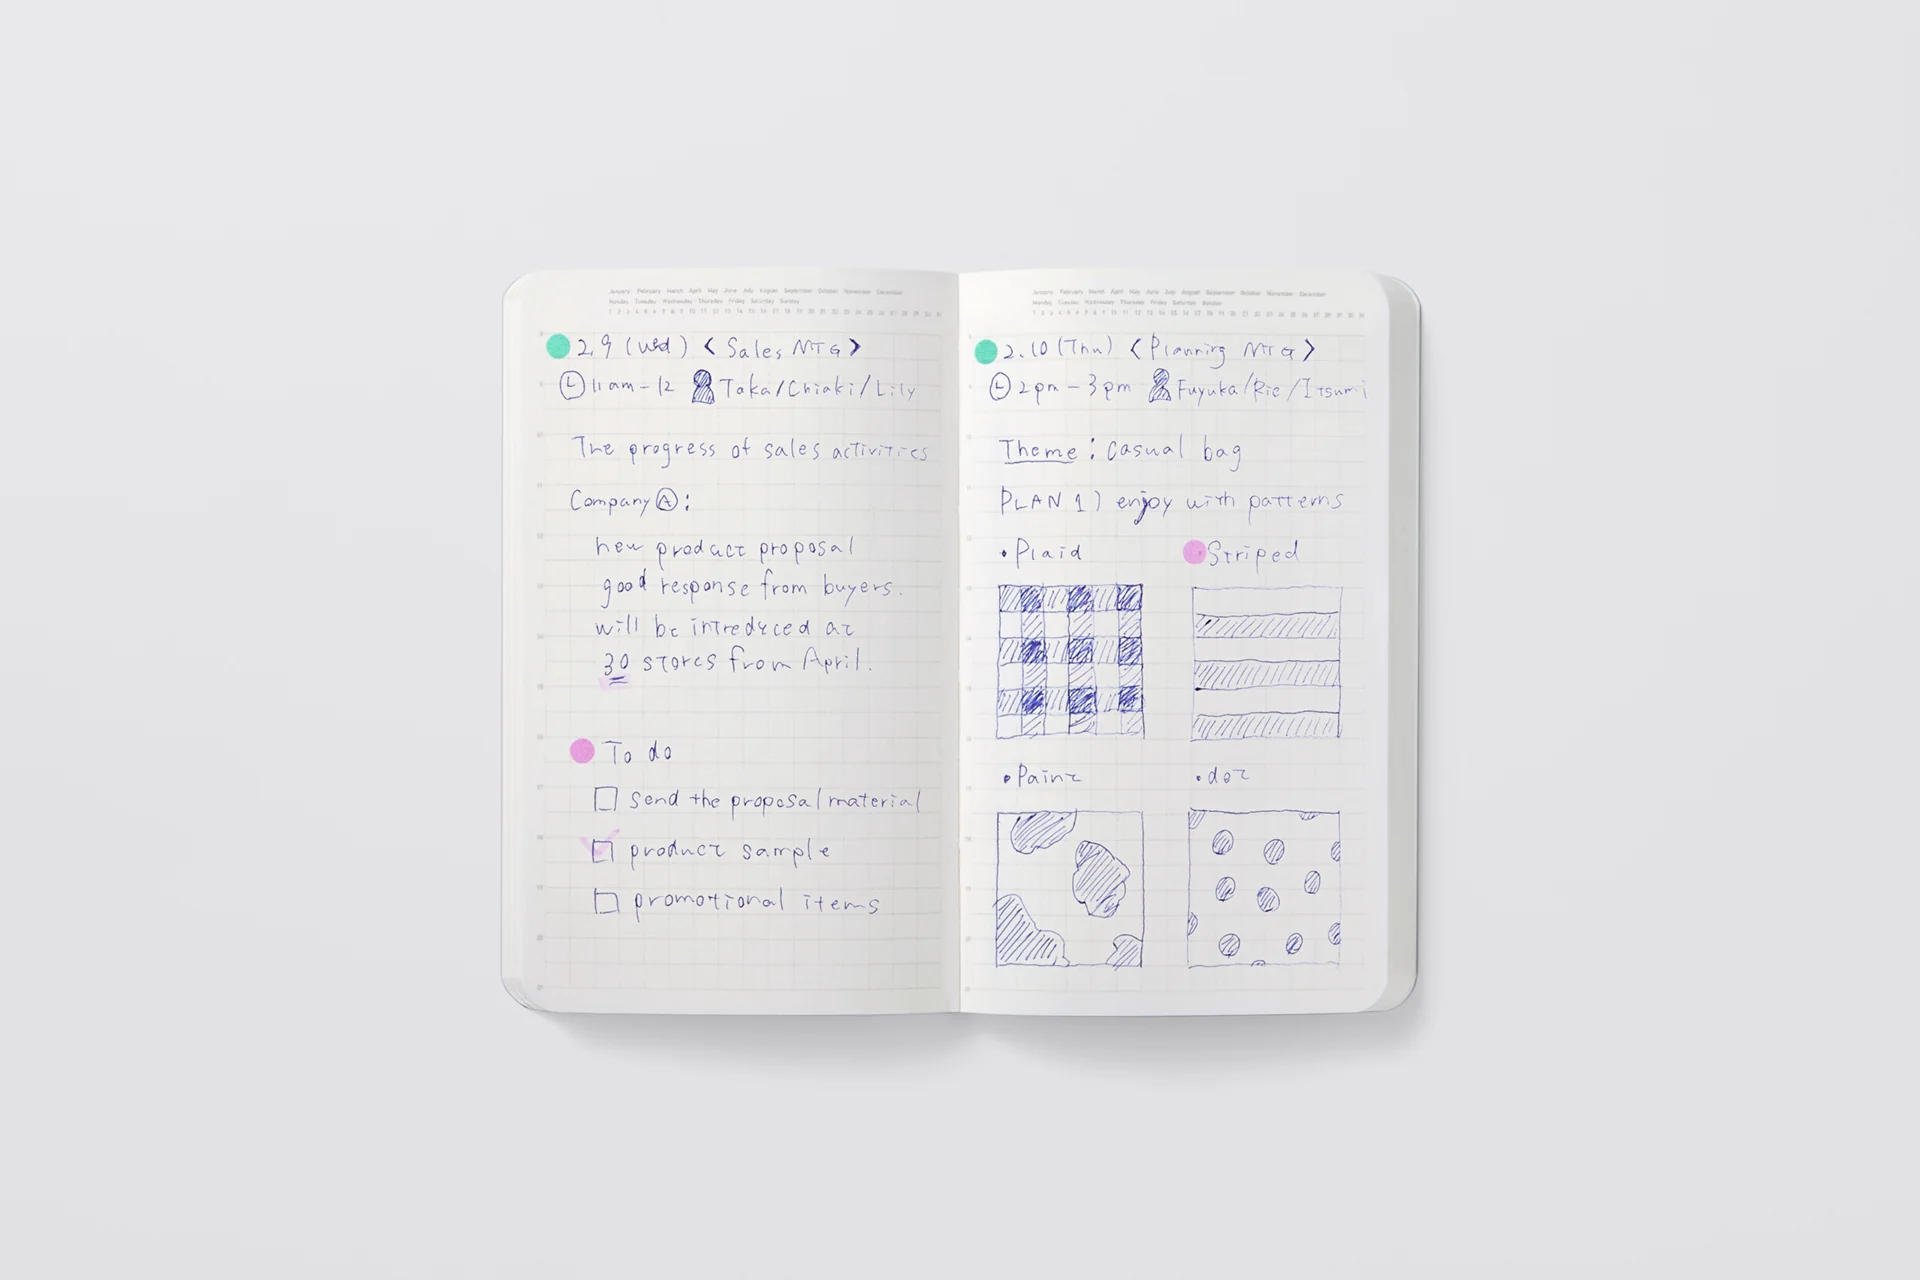 January February March April May June July August September October November December
Monday Tuesday Wednesday Thursday Friday Saturday Sunday
1 2 3 4 5 6 7 8 9 10 11 12 13 14 15 16 17 18 19 20 21 22 23 24 25 26 27 28 29 30 31
2.9 (Wed) <Sales MTG>
11am-12 Taka/Chiaki/Lily
The progress of sales activities
Company Ⓐ:
new product proposal
good response from buyers.
will be introduced at
30 stores from April.
To do
send the proposal material
product sample
promotional items
January February March April May June July August September October November December
Monday Tuesday Wednesday Thursday Friday Saturday Sunday
1 2 3 4 5 6 7 8 9 10 11 12 13 14 15 16 17 18 19 20 21 22 23 24 25 26 27 28 29 30 31
2.10 (Thu) <Planning MTG>
2pm-3pm Fuyuka/Rie/Itsumi
Theme: Casual bag
PLAN 1) enjoy with patterns
• Plaid
Striped
• Paint
• dot